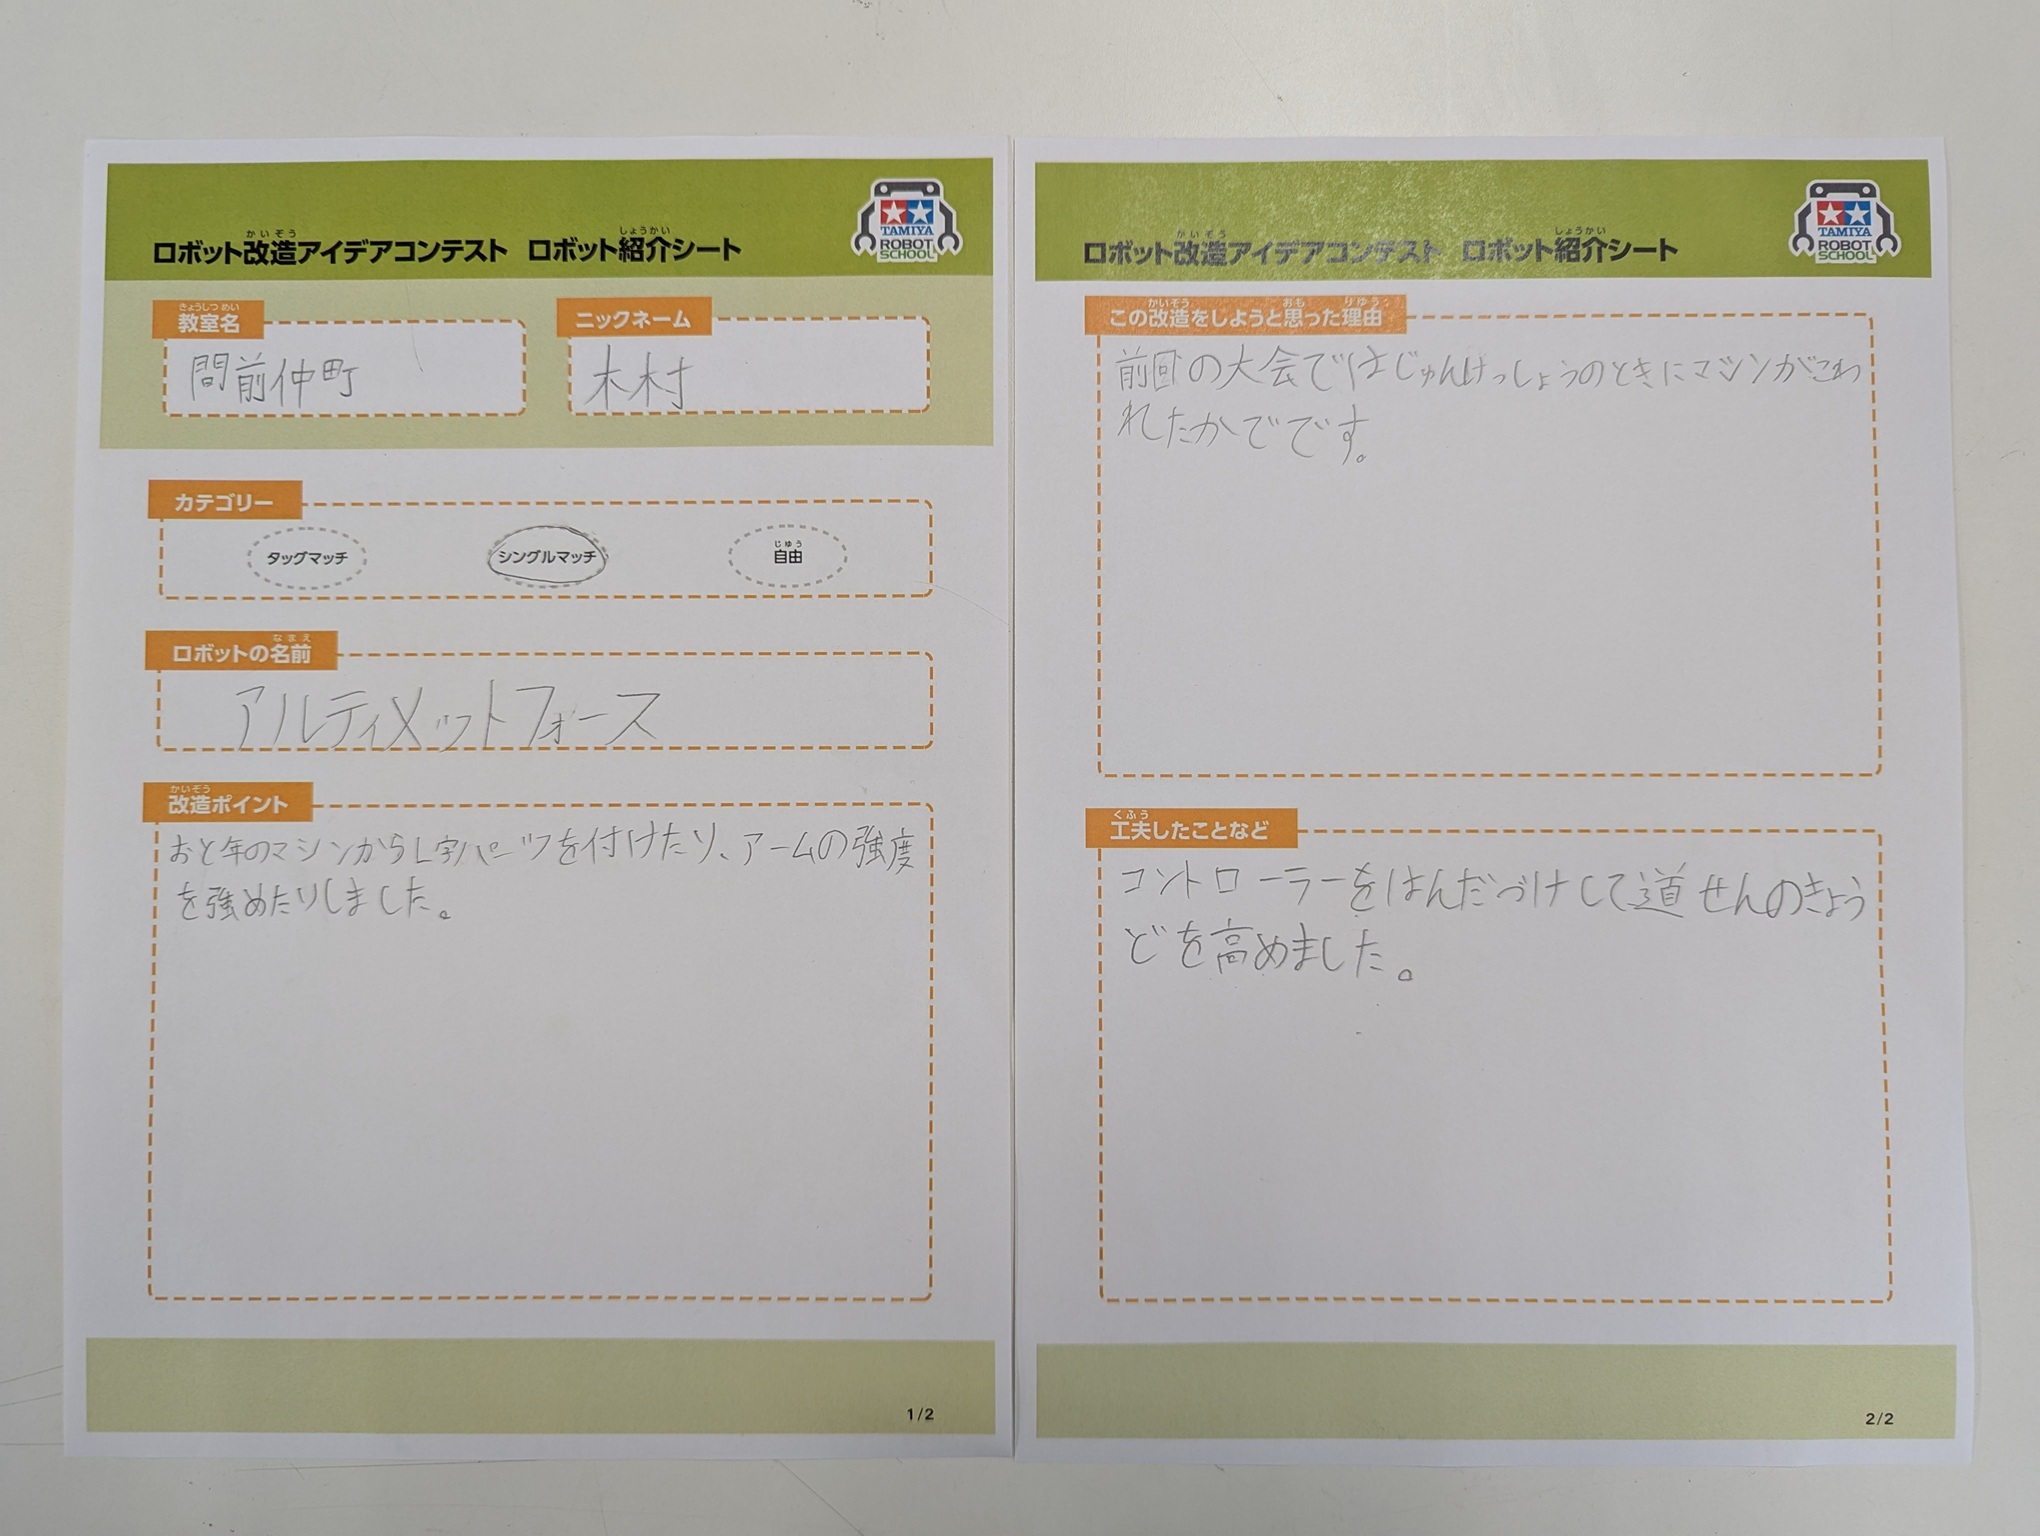 かいぞう しょうかい
ロボット改造アイデアコンテスト ロボット紹介シート
TAMIYA
ROBOT
SCHOOL
きょうしつ めい
教室名
間前仲町
ニックネーム
木村
カテゴリー
タッグマッチ
シングルマッチ
じゆう
自由
なまえ
ロボットの名前
アルティメットフォース
かいぞう
改造ポイント
おと年のマシンからL字パーツを付けたり、アームの強度
を強めたりしました。
1/2
かいぞう しょうかい
ロボット改造アイデアコンテスト ロボット紹介シート
TAMIYA
ROBOT
SCHOOL
かいぞう おも りゆう
この改造をしようと思った理由
前回の大会ではじゅんけっしょうのときにマシンがこわ
れたかでです。
くふう
工夫したことなど
コントローラーをはんだづけして道せんのきょう
どを高めました。
2/2